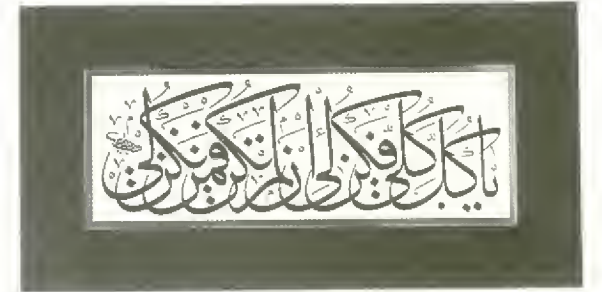 يا كل كلي فكن لي إن لم تكن لي فمن لي